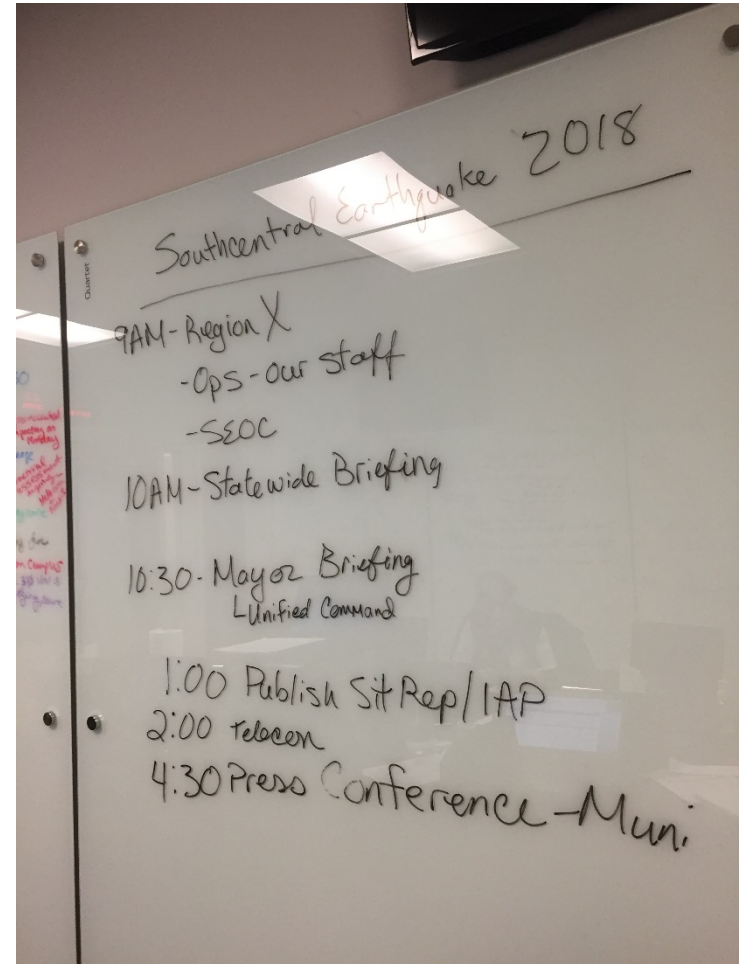 Southcentral Earthquake 2018
Quartet
9AM-Region X
-Ops-our staff
-SEOC
10AM-Statewide Briefing
10:30-Mayor Briefing
Unified Command
1:00 Publish SitRep/IAP
2:00 Telecon
4:30 Press Conference-Muni